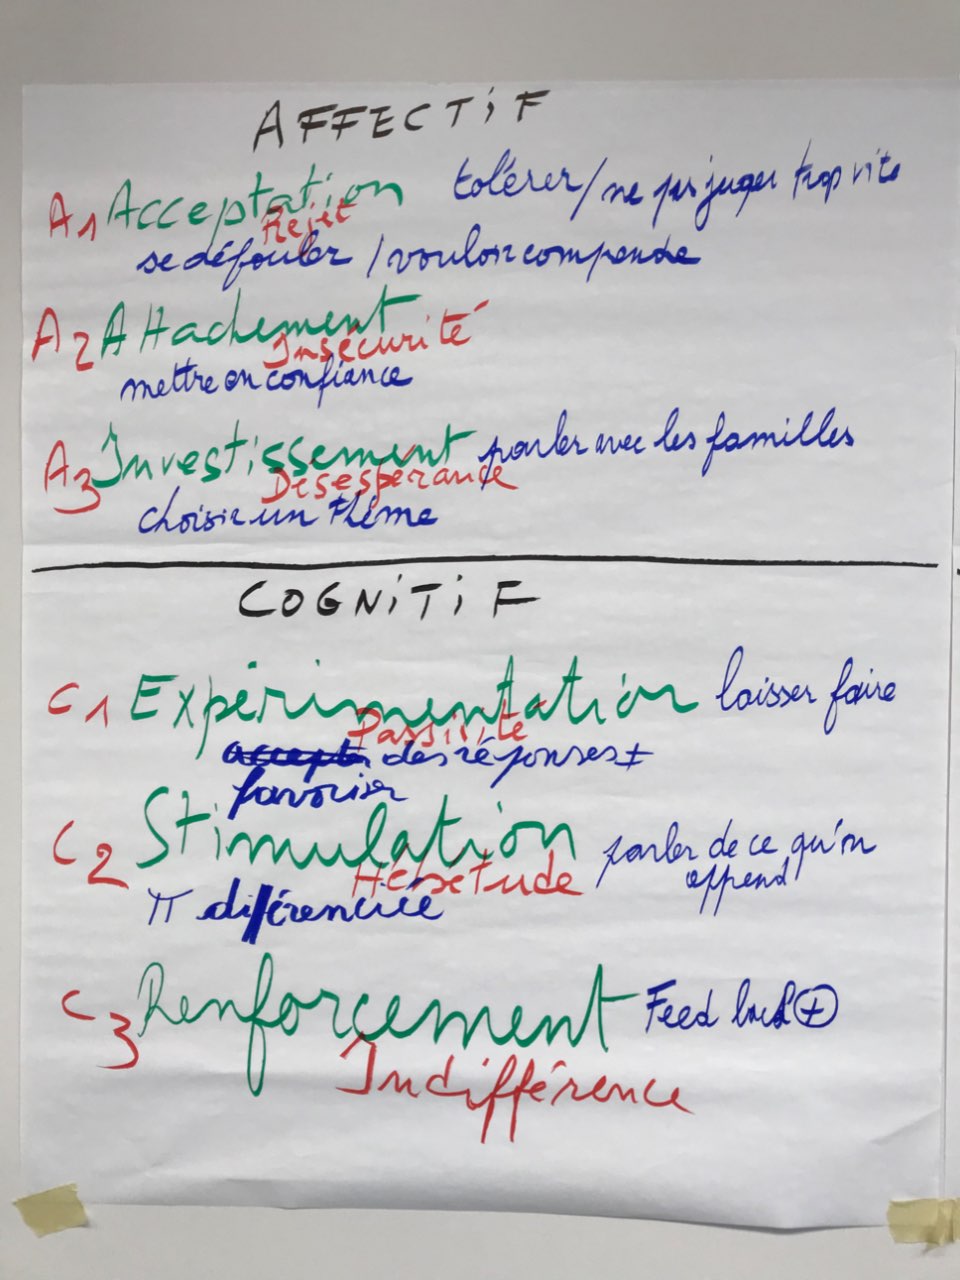 AFFECTiF
A1 Acceptation tolérer / ne pas juger trop vite
Rejet
se défouler / vouloir compende
A2 Attachement
Insécurité
mettre en confiance
A3 Investissement parler avec les familles
Désespérance
choisir un thème
COGNiTiF
C1 Expérimentation laisser faire
Passivité
accepter des réponses ±
favoriser
C2 Stimulation parler de ce qu'on
Hébétude append
π différenciée
C3 Renforcement Feed back +
Indifférence